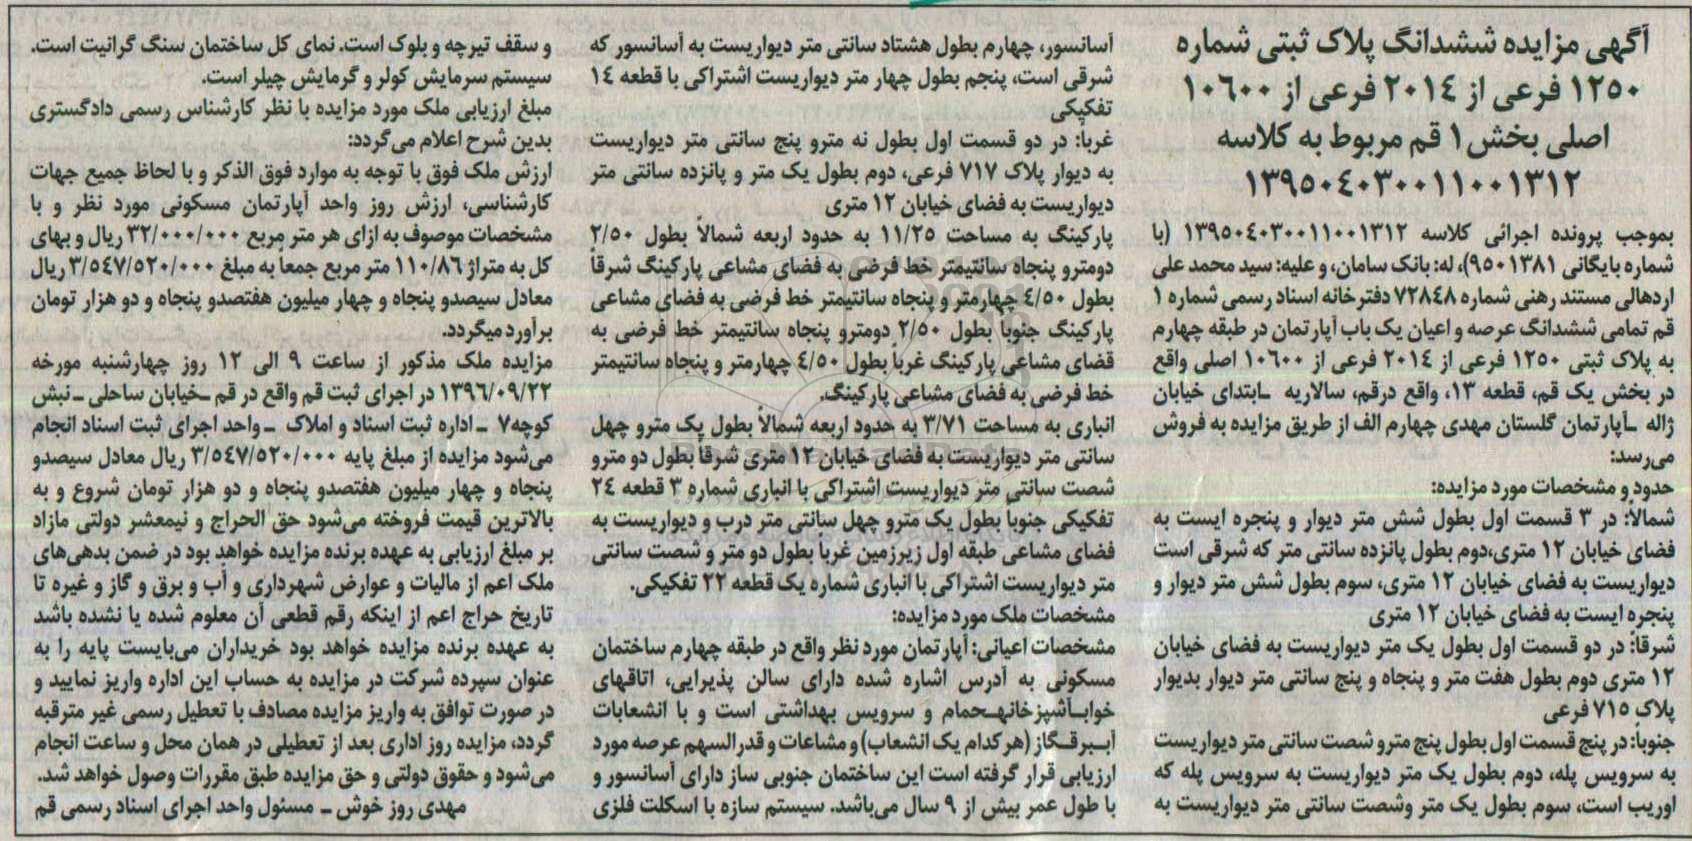 آگهی مزایده ششدانگ پلاک ثبتی شماره
۱۲۵۰ فرعی از ۲۰۱۴ فرعی از ۱۰۶۰۰
اصلی بخش ۱ قم مربوط به کلاسه
۱۳۹۵۰۴۰۳۰۰۱۱۰۰۱۳۱۲
بموجب پرونده اجرائی کلاسه ۱۳۹۵۰۴۰۳۰۰۱۱۰۰۱۳۱۲ (با
شماره بایگانی ۹۵۰۱۳۸۱)، له: بانک سامان، و علیه: سید محمد علی
اردهالی مستند رهنی شماره ۷۲۸۴۸ دفترخانه اسناد رسمی شماره ۱
قم تمامی ششدانگ عرصه و اعیان یک باب آپارتمان در طبقه چهارم
به پلاک ثبتی ۱۲۵۰ فرعی از ۲۰۱۴ فرعی از ۱۰۶۰۰ اصلی واقع
در بخش یک قم، قطعه ۱۳، واقع درقم، سالاریه ـابتدای خیابان
ژاله ـآپارتمان گلستان مهدی چهارم الف از طریق مزایده به فروش
می‌رسد:
حدود و مشخصات مورد مزایده:
شمالاً: در ۳ قسمت اول بطول شش متر دیوار و پنجره ایست به
فضای خیابان ۱۲ متری،دوم بطول پانزده سانتی متر که شرقی است
دیواریست به فضای خیابان ۱۲ متری، سوم بطول شش متر دیوار و
پنجره ایست به فضای خیابان ۱۲ متری
شرقاً: در دو قسمت اول بطول یک متر دیواریست به فضای خیابان
۱۲ متری دوم بطول هفت متر و پنجاه و پنج سانتی متر دیوار بدیوار
پلاک ۷۱۵ فرعی
جنوباً: در پنج قسمت اول بطول پنج مترو شصت سانتی متر دیواریست
به سرویس پله، دوم بطول یک متر دیواریست به سرویس پله که
اوریب است، سوم بطول یک متر وشصت سانتی متر دیواریست به
آسانسور، چهارم بطول هشتاد سانتی متر دیواریست به آسانسور که
شرقی است، پنجم بطول چهار متر دیواریست اشتراکی با قطعه ۱۴
تفکیکی
غرباً: در دو قسمت اول بطول نه مترو پنج سانتی متر دیواریست
به دیوار پلاک ۷۱۷ فرعی، دوم بطول یک متر و پانزده سانتی متر
دیواریست به فضای خیابان ۱۲ متری
پارکینگ به مساحت ۱۱/۲۵ به حدود اربعه شمالاً بطول ۲/۵۰
دومترو پنجاه سانتیمتر خط فرضی به فضای مشاعی پارکینگ شرقاً
بطول ۴/۵۰ چهارمتر و پنجاه سانتیمتر خط فرضی به فضای مشاعی
پارکینگ جنوباً بطول ۲/۵۰ دومترو پنجاه سانتیمتر خط فرضی به
فضای مشاعی پارکینگ غرباً بطول ۴/۵۰ چهارمتر و پنجاه سانتیمتر
خط فرضی به فضای مشاعی پارکینگ.
انباری به مساحت ۳/۷۱ به حدود اربعه شمالاً بطول یک مترو چهل
سانتی متر دیواریست به فضای خیابان ۱۲ متری شرقاً بطول دو مترو
شصت سانتی متر دیواریست اشتراکی با انباری شماره ۳ قطعه ۲۴
تفکیکی جنوباً بطول یک مترو چهل سانتی متر درب و دیواریست به
فضای مشاعی طبقه اول زیرزمین غرباً بطول دو متر و شصت سانتی
متر دیواریست اشتراکی با انباری شماره یک قطعه ۲۲ تفکیکی.
مشخصات ملک مورد مزایده:
مشخصات اعیانی: آپارتمان مورد نظر واقع در طبقه چهارم ساختمان
مسکونی به آدرس اشاره شده دارای سالن پذیرایی، اتاقهای
خواب‌ـآشپزخانه‌ـحمام و سرویس بهداشتی است و با انشعابات
آب‌ـبرق‌ـگاز (هر کدام یک انشعاب) و مشاعات و قدرالسهم عرصه مورد
ارزیابی قرار گرفته است این ساختمان جنوبی ساز دارای آسانسور و
با طول عمر بیش از ۹ سال می‌باشد. سیستم سازه با اسکلت فلزی
و سقف تیرچه و بلوک است. نمای کل ساختمان سنگ گرانیت است.
سیستم سرمایش کولر و گرمایش چیلر است.
مبلغ ارزیابی ملک مورد مزایده با نظر کارشناس رسمی دادگستری
بدین شرح اعلام می‌گردد:
ارزش ملک فوق با توجه به موارد فوق الذکر و با لحاظ جمیع جهات
کارشناسی، ارزش روز واحد آپارتمان مسکونی مورد نظر و با
مشخصات موصوف به ازای هر متر مربع ۳۲/۰۰۰/۰۰۰ ریال و بهای
کل به متراژ ۱۱۰/۸۶ متر مربع جمعاً به مبلغ ۳/۵۴۷/۵۲۰/۰۰۰ ریال
معادل سیصدو پنجاه و چهار میلیون هفتصدو پنجاه و دو هزار تومان
برآورد میگردد.
مزایده ملک مذکور از ساعت ۹ الی ۱۲ روز چهارشنبه مورخه
۱۳۹۶/۰۹/۲۲ در اجرای ثبت قم واقع در قم ـخیابان ساحلی ـنبش
کوچه۷ ـ اداره ثبت اسناد و املاک ـ واحد اجرای ثبت اسناد انجام
می‌شود مزایده از مبلغ پایه ۳/۵۴۷/۵۲۰/۰۰۰ ریال معادل سیصدو
پنجاه و چهار میلیون هفتصدو پنجاه و دو هزار تومان شروع و به
بالاترین قیمت فروخته می‌شود حق الحراج و نیمعشر دولتی مازاد
بر مبلغ ارزیابی به عهده برنده مزایده خواهد بود در ضمن بدهی‌های
ملک اعم از مالیات و عوارض شهرداری و آب و برق و گاز و غیره تا
تاریخ حراج اعم از اینکه رقم قطعی آن معلوم شده یا نشده باشد
به عهده برنده مزایده خواهد بود خریداران می‌بایست پایه را به
عنوان سپرده شرکت در مزایده به حساب این اداره واریز نمایید و
در صورت توافق به واریز مزایده مصادف با تعطیل رسمی غیر مترقبه
گردد، مزایده روز اداری بعد از تعطیلی در همان محل و ساعت انجام
می‌شود و حقوق دولتی و حق مزایده طبق مقررات وصول خواهد شد.
مهدی روز خوش ـ مسئول واحد اجرای اسناد رسمی قم